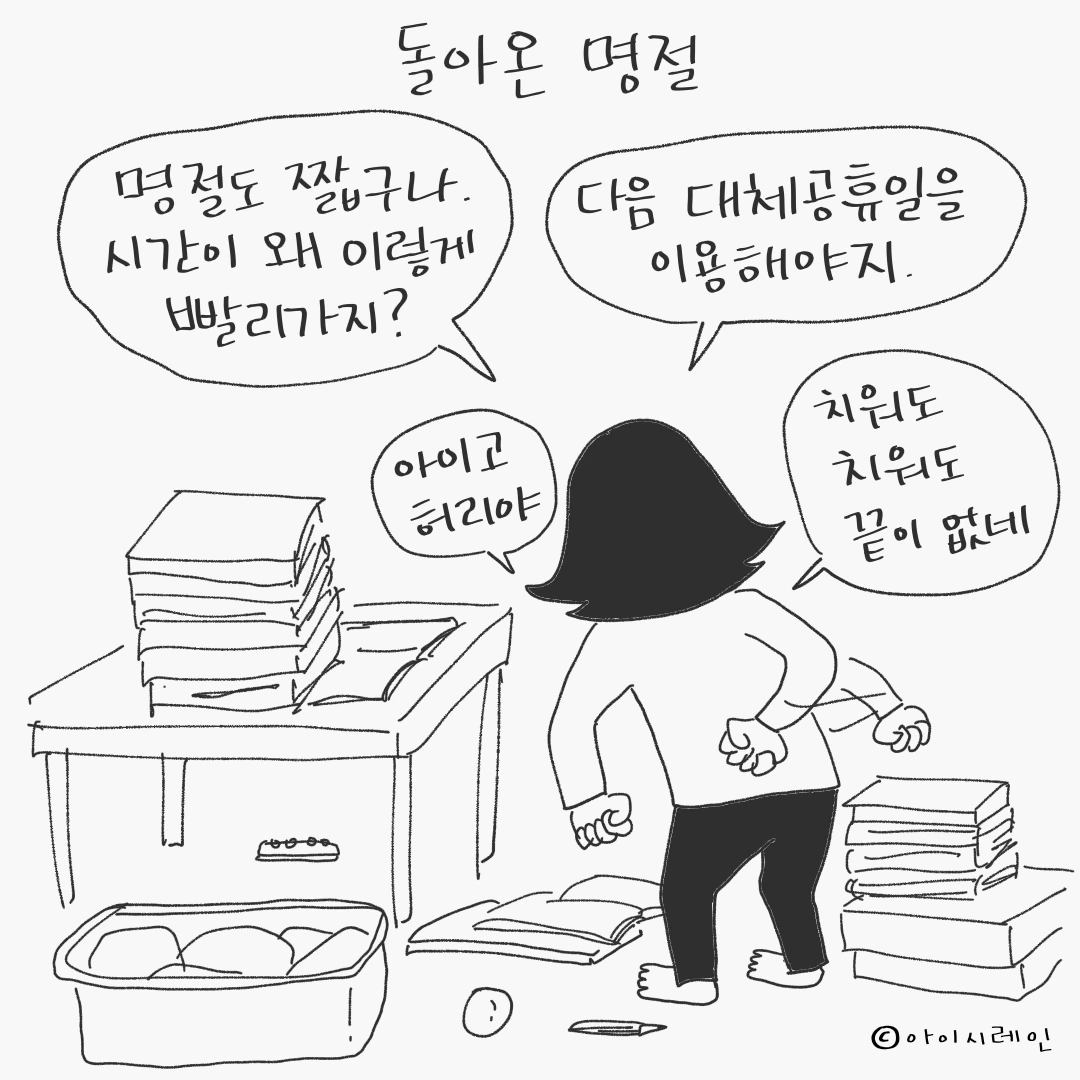 돌아온 명절
명절도 짧구나.
시간이 왜 이렇게
빨리가지?
다음 대체공휴일을
이용해야지.
아이고
허리야
치워도
치워도
끝이 없네
©아이시레인